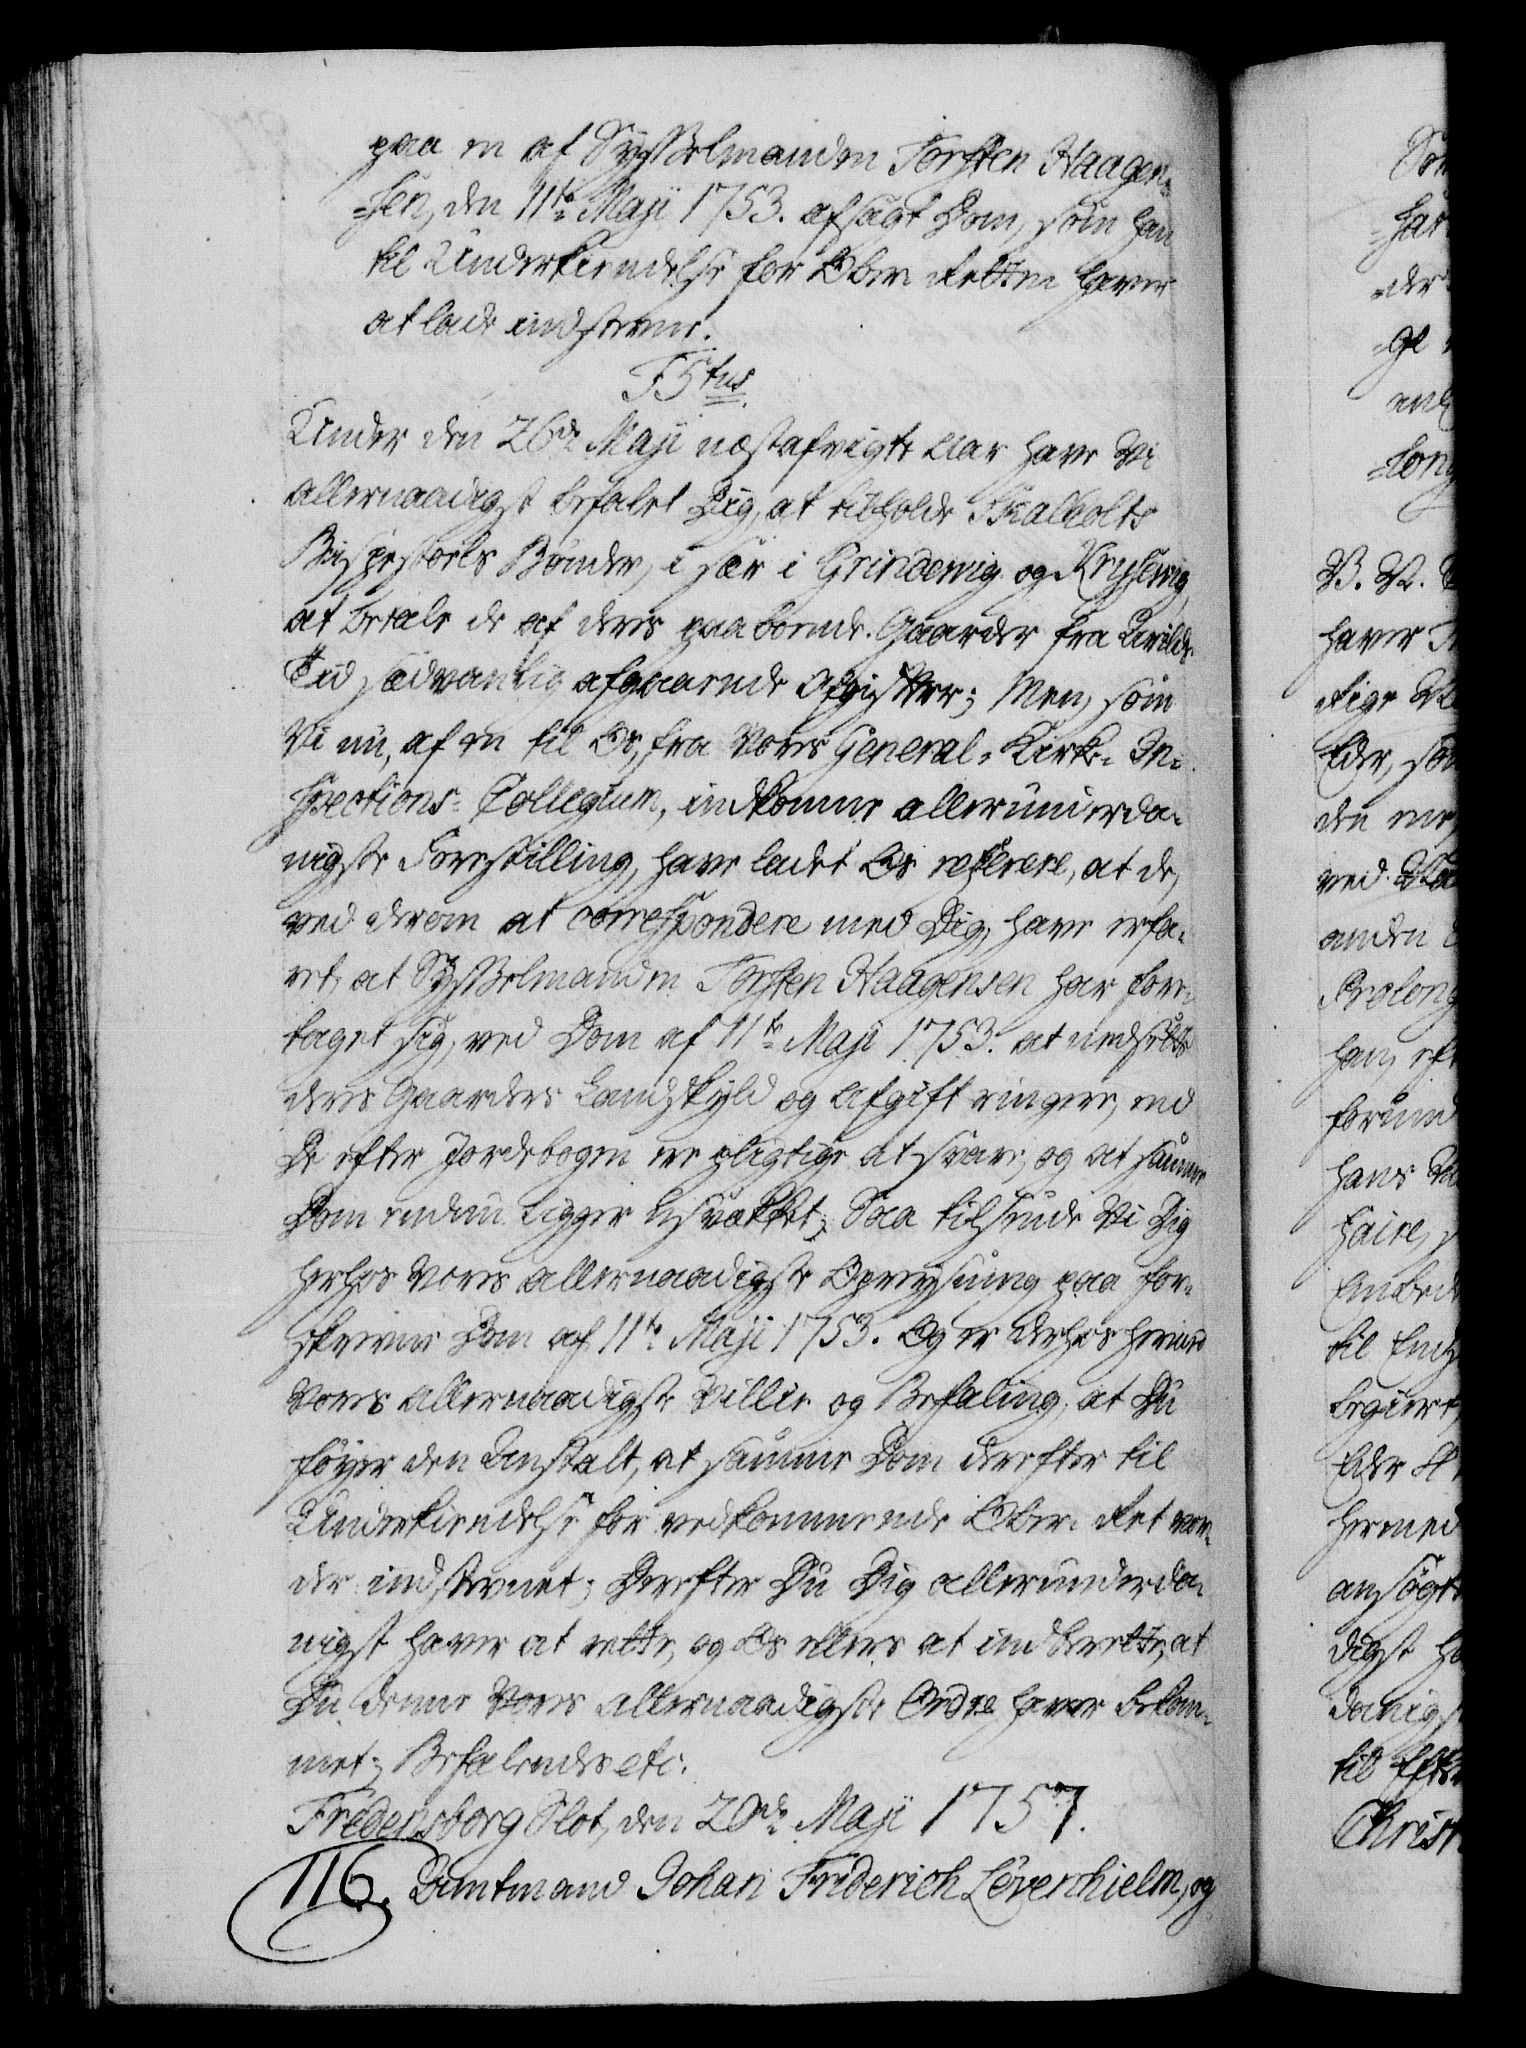 paa en af Sysselmanden Torsten Haagen-
-sen, den 11te Maji 1753. afsagt Dom, som han
til Underkiendelse for Ober Retten haver
at lade indstevne.
F5tus
Under den 26de Maji næstafvigte Aar have Vi
allernaadigst befalet Dig, at tilholde Skalholts
Bispestoels Bønder, i sær i Grindevig og Krysevig,
at betale de af deres paaboende Gaarder fra Arilds
Tid sædvanlig afgaaende Afgifter; Men, som
Vi nu, af en til Os, fra Vores General-Kirke-In-
spections-Collegium, indkomne allerunderda-
nigste Forestilling, have ladet Os referere, at de,
ved derom at correspondere med Dig, have erfa-
ret, at Sysselmanden Torsten Haagensen har fore-
taget sig, ved Dom af 11te Maji 1753. at nedsætte
deres Gaarders Landskyld og Afgift ringere, end
De efter Jordebogen ere pligtige at svare, og at samme
Dom endnu ligger usvækket; Saa tilsende Vi Dig
herhos Vores allernaadigste Opreysning paa for-
skrevne Dom af 11te Maji 1753. Og er derhos hermed
Vores allernaadigste Villie og Befaling, at Du
føyer den Anstalt, at samme Dom derefter til
Underkiendelse for vedkommende Ober-Ret vor-
der indstevnet; Derefter Du Dig allerunderda-
nigst haver at rette, og Os ellers at indberette, at
Du denne Vores allernaadigste Ordre haver bekom-
met; Befalendes etc:
Fredensborg Slot, den 20de Maji 1757.
116. Amtmand Johan Friderich Levenhielm, og